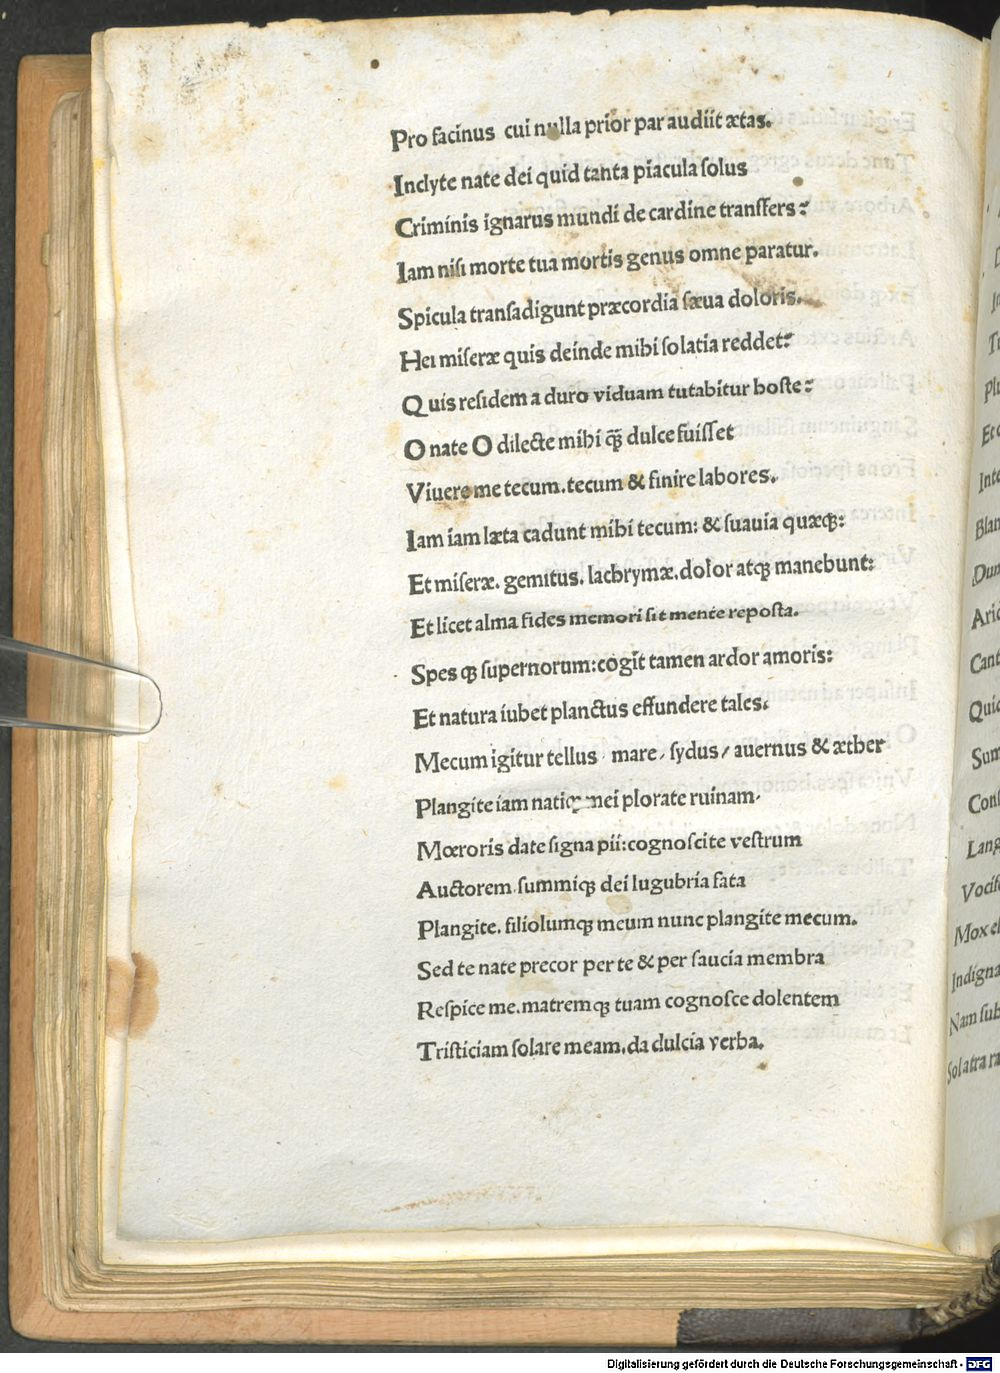 Pro facinus cui nulla prior par audiit ætas.
Inclyte nate dei quid tanta piacula ſolus
Criminis ignarus mundi de cardine transfers?
Iam niſi morte tua mortis genus omne paratur.
Spicula tranſadigunt præcordia ſæua doloris.
Hei miſeræ quis deinde mihi ſolatia reddet?
Quis reſidem a duro viduam tutabitur hoſte?
O nate O dilecte mihi q̃ȝ dulce fuiſſet
Viuere me tecum. tecum & finire labores.
Iam iam læta cadunt mihi tecum: & ſuauia quæqȝ:
Et miſeræ. gemitus. lachrymæ. dolor atqȝ manebunt:
Et licet alma fides memori ſit mente repoſta.
Spes qȝ ſupernorum: cogit tamen ardor amoris:
Et natura iubet planctus effundere tales.
Mecum igitur tellus mare, ſydus, auernus & æther
Plangite iam mei plorate ruinam.
Mœroris date ſigna pii: cognoſcite veſtrum
Auctorem. ſummiqȝ dei lugubria fata
Plangite. filiolumqȝ meum nunc plangite mecum.
Sed te nate precor per te & per ſaucia membra
Reſpice me. matremqȝ tuam cognoſce dolentem
Triſticiam ſolare meam. da dulcia verba.
Digitalisierung gefördert durch die Deutsche Forschungsgemeinschaft - DFG